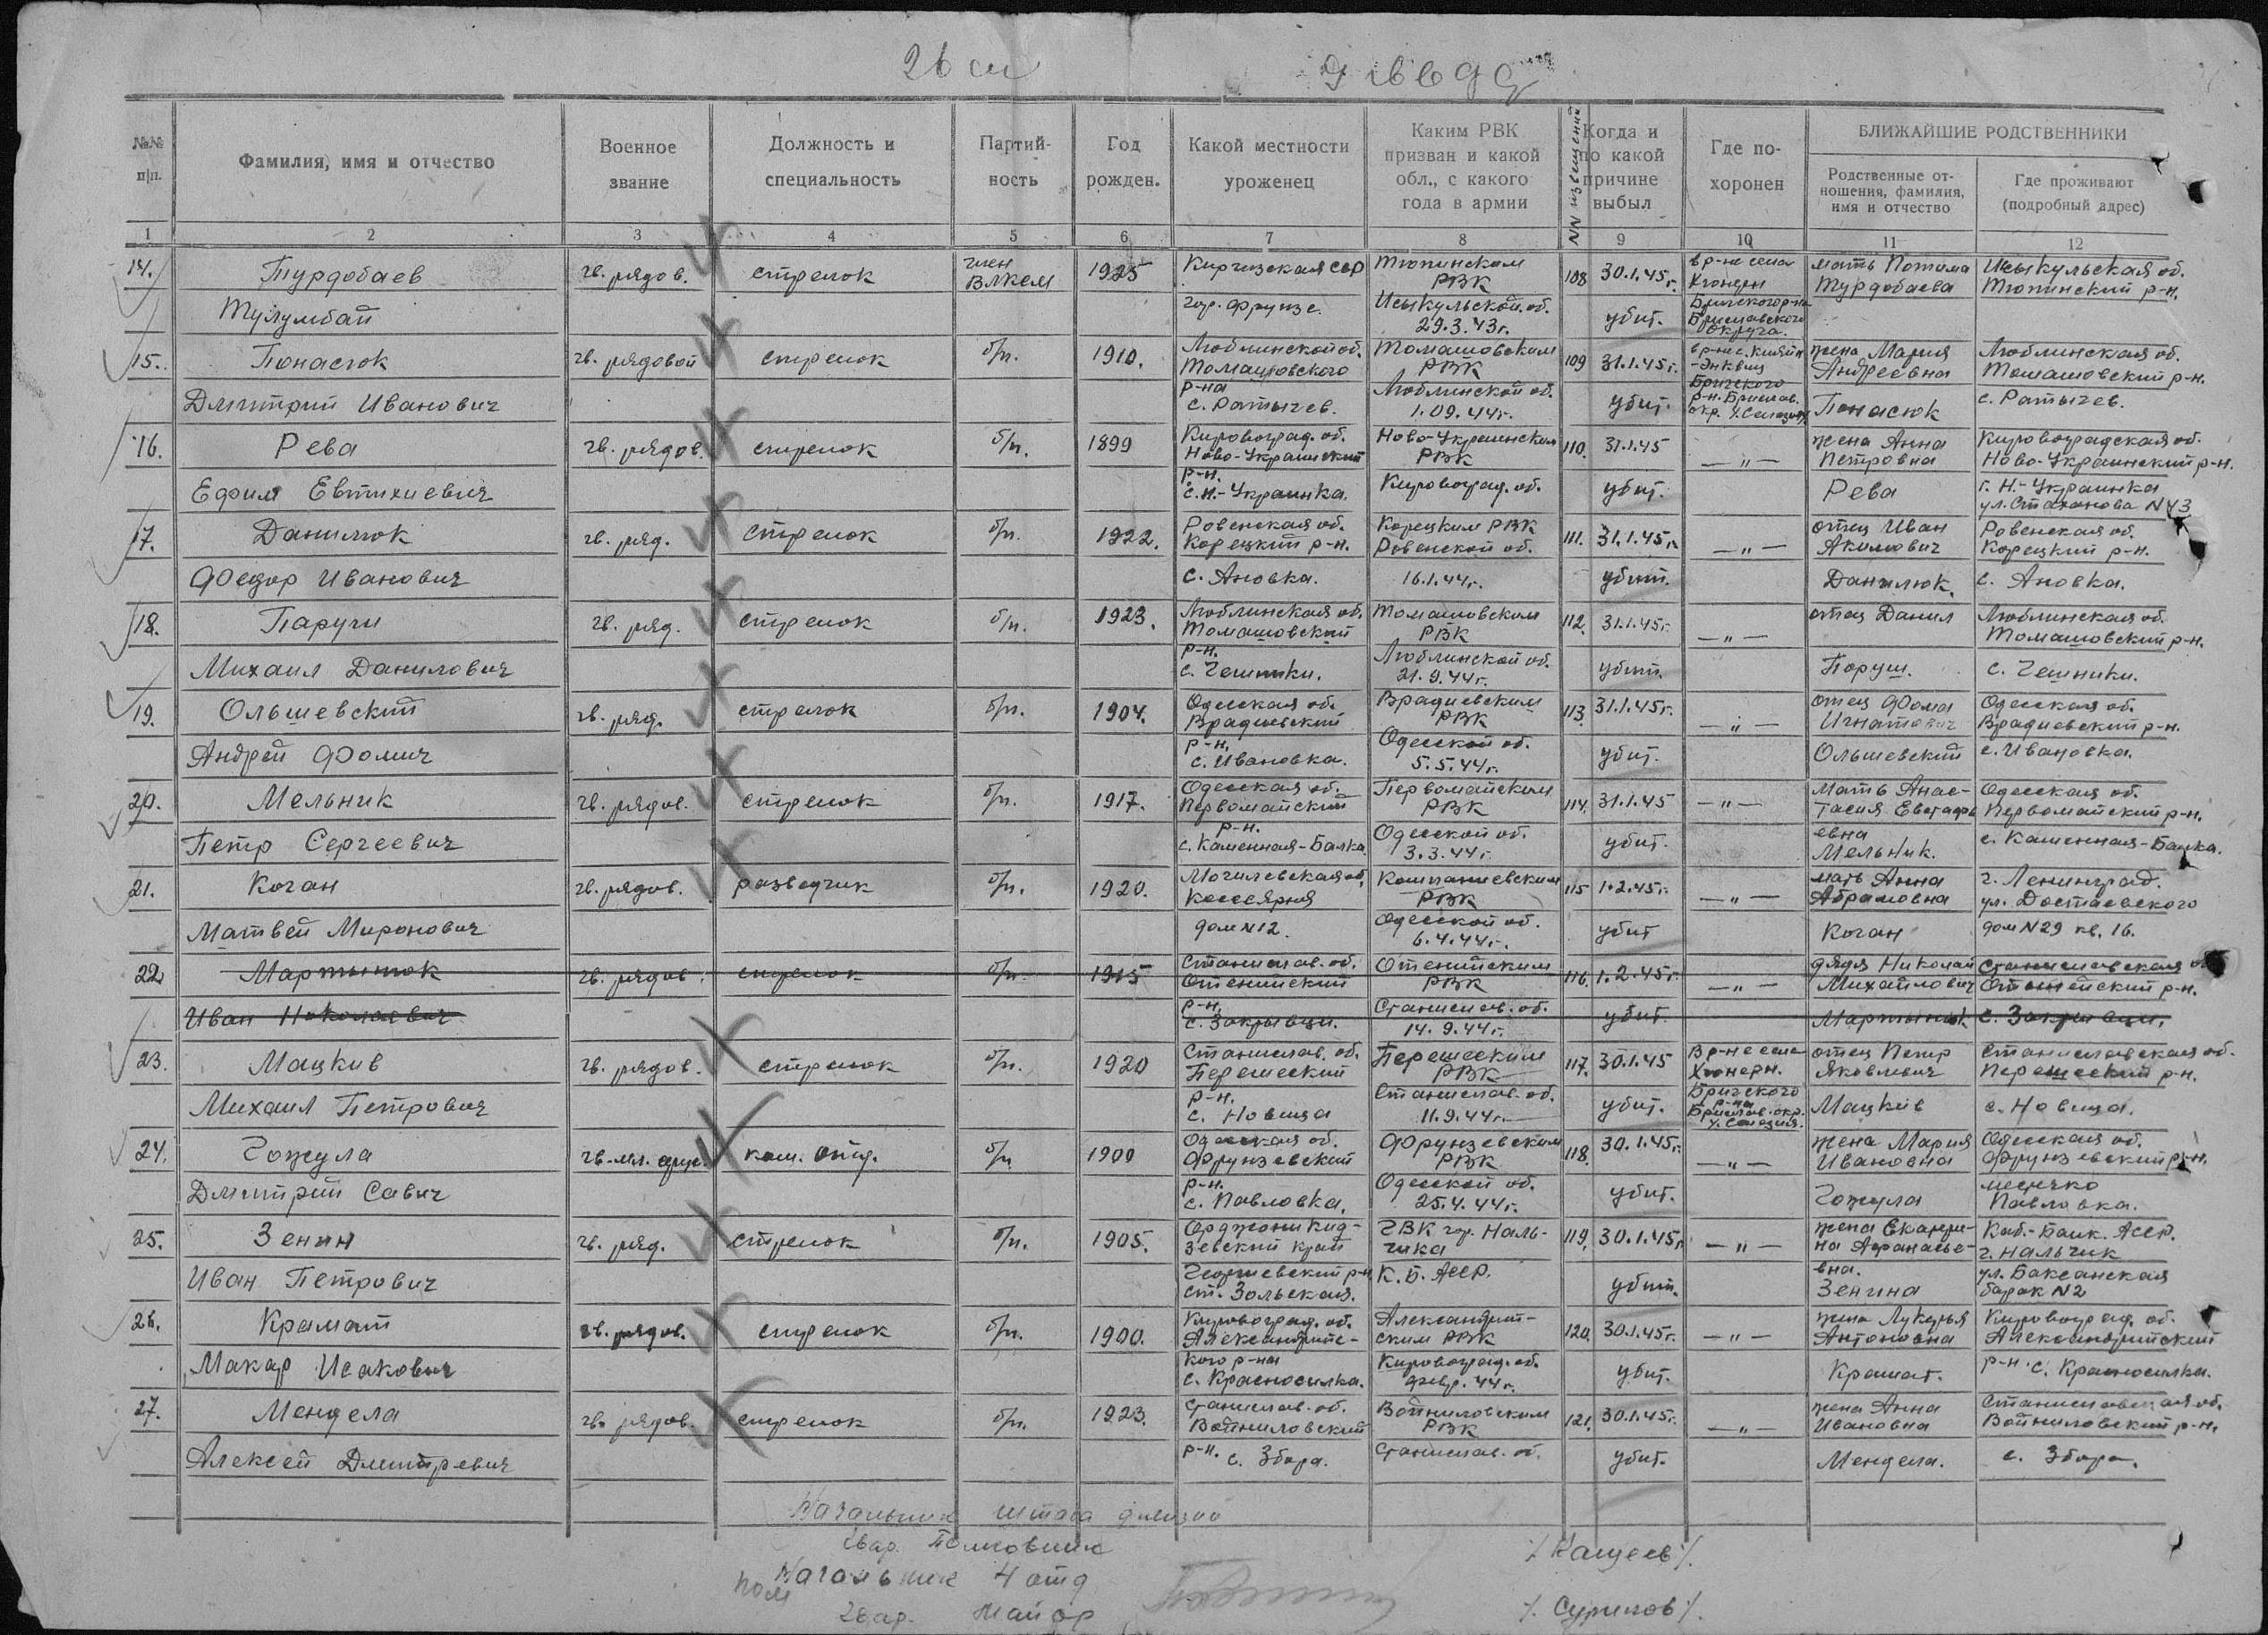 26 сп 9 гв вдд
№№ п/п.
Фамилия, имя и отчество
Военное звание
Должность и специальность
Партий- ность
Год рожден.
Какой местности уроженец
Каким РВК призван и какой обл., с какого года в армии
NN извещений
Когда и по какой причине выбыл
Где по- хоронен
БЛИЖАЙШИЕ РОДСТВЕННИКИ
Родственные от- ношения, фамилия, имя и отчество
Где проживают (подробный адрес)
1 2 3 4 5 6 7 8 9 10 11 12
14. Турдобаев гв. рядов. стрелок член ВЛКСМ 1925 Киргизская ССР Тюпинском РВК 108 30.1.45г. в р-не села мать Потима Турдобаева Исыкульская об. Тюпинский р-н.
Тулумбай гор. Фрунзе. Исыкульской об. 29.3.43г. убит.
15. Понасюк гв. рядовой стрелок б/п. 1910. Люблинской об. Томашовского Томашовским РВК 109 31.1.45г. жена Мария Андреевна Люблинская об. Томашовский р-н.
Дмитрий Иванович р-на с. Ратычев. Люблинской об. 1.09.44г. убит. Понасюк с. Ратычев.
16. Рева гв. рядов. стрелок б/п. 1899 Кировоград. об. Ново-Украинский Ново-Украинским РВК 110. 31.1.45 — " — жена Анна Петровна Кировоградская об. Ново-Украинский р-н.
Ефим Евтихиевич р-н. с. Н.-Украинка. Кировоград. об. убит. Рева г. Н.-Украинка ул. Стаханова N43
17. Данилюк гв. ряд. стрелок б/п. 1922. Ровенская об. Корецкий р-н. Корецким РВК Ровенской об. 111. 31.1.45г. — " — отец Иван Акимович Ровенская об. Корецкий р-н.
Федор Иванович с. Ановка. 16.1.44г. убит. Данилюк. с. Ановка.
18. Паруги гв. ряд. стрелок б/п. 1923. Люблинская об. Томашовский Томашовским РВК 112. 31.1.45г. — " — отец Данил Люблинская об. Томашовский р-н.
Михаил Данилович р-н. с. Чешники. Люблинской об. 21.9.44г. убит. Поруш. с. Чешники.
19. Ольшевский гв. ряд. стрелок б/п. 1904. Одесская об. Врадиевский Врадиевским РВК 113. 31.1.45г. — " — отец Фома Игнатович Одесская об. Врадиевский р-н.
Андрей Фомич р-н. с. Ивановка. Одесской об. 5.5.44г. убит. Ольшевский с. Ивановка.
20. Мельник гв. рядов. стрелок б/п. 1917. Одесская об. Первомайский Первомайским РВК 114. 31.1.45 — " — Мать Анас- тасия Евстафь Одесская об. Первомайский р-н.
Петр Сергеевич р-н. с. Каменная-Балка. Одесской об. 3.3.44г. убит. евна Мельник. с. Каменная-Балка.
21. Коган гв. рядов. разведчик б/п. 1920. Могилевская об. Кошпаниевским РВК 115 1.2.45г. — " — мать Анна Абрамовна г. Ленинград. ул. Достаевского
Матвей Миронович дом N12. Одесской об. 6.4.44г. убит Коган дом N29 кв. 16.
22. Мартынюк гв. рядов. стрелок б/п. 1915 Станислав. об. Отенийский Отенийским РВК 116. 1.2.45г. — " — дядя Николай Михайлович Станиславская об. Отенийский р-н.
Иван Николаевич р-н. с. Закрывци. Станислав. об. 14.9.44г. убит. Мартынюк с. Закривци.
23. Мацкив гв. рядов. стрелок б/п. 1920 Станислав. об. Перешеский Перешеским РВК 117. 30.1.45 В р-не села отец Петр Яковлевич Станиславская об. р-н.
Михаил Петрович р-н. с. Новица Станислав. об. 11.9.44г. убит. Бричского р-на Бриславс. окр. Мацкив с. Новица.
24. Гожула гв. мл. серж. ком. отд. б/п 1900 Одесская об. Фрунзевский Фрунзевским РВК 118. 30.1.45г. — " — жена Мария Ивановна Одесская об. Фрунзевский р-н.
Дмитрий Савич р-н. с. Павловка. Одесской об. 25.4.44г. убит. Гожула местечко Павловка.
25. Зенин гв. ряд. стрелок б/п. 1905. Орджоникид- зевский край ГВК гор. Наль- чика 119. 30.1.45г — " — жена Екатери- на Афанасье- Каб.-Балк. АССР. г. Нальчик
Иван Петрович Георгиевский р-н ст. Зольская. К. Б. АССР. убит. вна. Зенина ул. Баксанская барак N2
26. Крамат гв. рядов. стрелок б/п. 1900. Кировоград. об. Александрийс- Александрий- ским РВК 120. 30.1.45г. — " — жена Лукерья Антоновна Кировоград. об. Александрийский
Макар Исакович кого р-на с. Красносилка. Кировоград. об. февр. 44г. убит. Крамат. р-н. с. Красносилка.
27. Мендела гв. рядов. стрелок б/п. 1923. Станислав. об. Войниловский Войниловским РВК 121. 30.1.45г. — " — жена Анна Ивановна Станиславская об. Войниловский р-н.
Алексей Дмитревич р-н. с. Збора. Станислав. об. убит. Мендела. с. Збора.
Начальник штаба дивизии
Гвар. Полковник /Кащеев/.
пом Начальник 4 отд
Гвар. Майор /. Сурилов/.